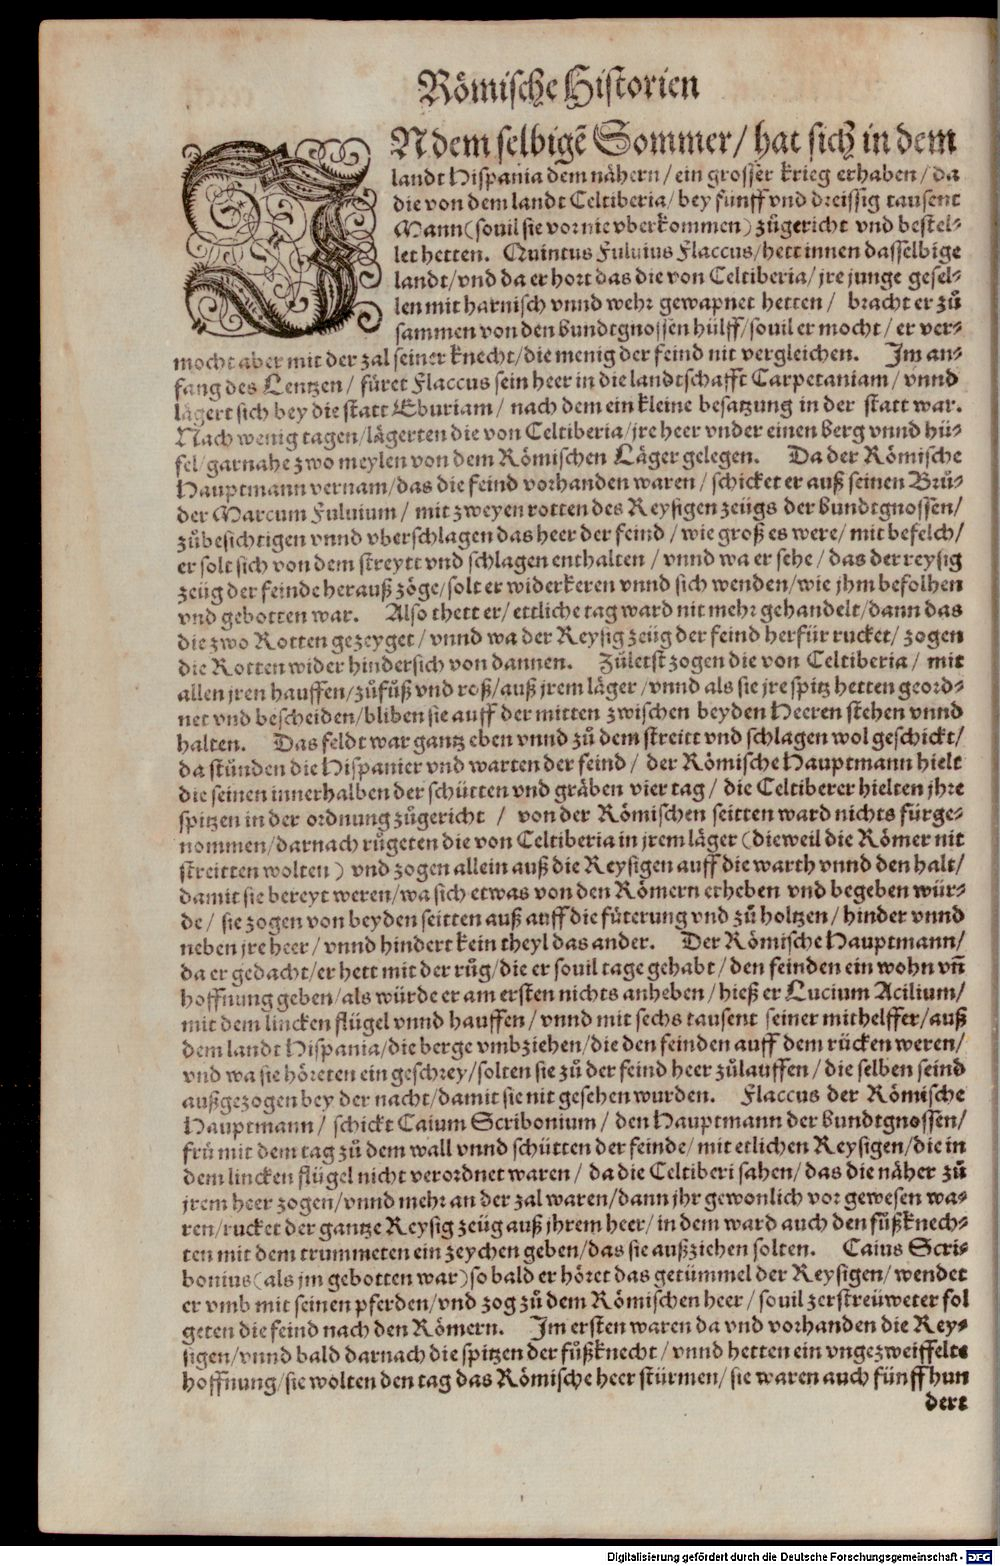 Römische Historien
INdem selbigẽ Sommer/ hat sich in dem
landt Hispania dem nähern/ ein grosser krieg erhaben/ da
die von dem landt Celtiberia/ bey fünff vnd dreissig tausent
Mann(souil sie vor nie vberkommen) zůgericht vnd bestel-
let hetten. Quintus Fuluius Flaccus/ hett innen dasselbige
landt/vnd da er hort das die von Celtiberia/ jre junge gesel-
len mit harnisch vnnd wehr gewapnet hetten/ bracht er zů
sammen von den bundtgnossen hülff/souil er mocht/ er ver-
mocht aber mit der zal seiner knecht/die menig der feind nit vergleichen. Im an-
fang des Lentzen/ füret Flaccus sein heer in die landtschafft Carpetaniam/ vnnd
lägert sich bey die statt Eburiam/ nach dem ein kleine besatzung in der statt war.
Nach wenig tagen/lägerten die von Celtiberia/jre heer vnder einen berg vnnd hü-
fel/garnahe zwo meylen von dem Römischen Läger gelegen. Da der Römische
Hauptmann vernam/das die feind vorhanden waren/ schicket er auß seinen Brů-
der Marcum Fuluium/ mit zweyen rotten des Reysigen zeügs der bundtgnossen/
zůbesichtigen vnnd vberschlagen das heer der feind/ wie groß es were/ mit befelch/
er solt sich von dem streytt vnd schlagen enthalten/ vnnd wa er sehe/ das der reysig
zeüg der feinde herauß zöge/solt er widerkeren vnnd sich wenden/wie jhm befolhen
vnd gebotten war. Also thett er/ ettliche tag ward nit mehr gehandelt/dann das
die zwo Rotten gezeyget/ vnnd wa der Reysig zeüg der feind herfür rucket/ zogen
die Rotten wider hindersich von dannen. Zůletst zogen die von Celtiberia/ mit
allen jren hauffen/zůfůß vnd roß/auß jrem läger/vnnd als sie jre spitz hetten geord-
net vnd bescheiden/bliben sie auff der mitten zwischen beyden Heeren stehen vnnd
halten. Das feldt war gantz eben vnnd zů dem streitt vnd schlagen wol geschickt/
da stůnden die Hispanier vnd warten der feind/ der Römische Hauptmann hielt
die seinen innerhalben der schütten vnd gräben vier tag/ die Celtiberer hielten jhre
spitzen in der ordnung zůgericht / von der Römischen seitten ward nichts fürge-
nommen/darnach růgeten die von Celtiberia in jrem läger (dieweil die Römer nit
streitten wolten) vnd zogen allein auß die Reysigen auff die warth vnnd den halt/
damit sie bereyt weren/wa sich etwas von den Römern erheben vnd begeben wür-
de/ sie zogen von beyden seitten auß auff die fůterung vnd zů holtzen/ hinder vnnd
neben jre heer/ vnnd hindert kein theyl das ander. Der Römische Hauptmann/
da er gedacht/er hett mit der růg/die er souil tage gehabt/ den feinden ein wohn vñ
hoffnung geben/als würde er am ersten nichts anheben/ hieß er Lucium Acilium/
mit dem lincken flügel vnnd hauffen/ vnnd mit sechs tausent seiner mithelffer/auß
dem landt Hispania/die berge vmbziehen/die den feinden auff dem rücken weren/
vnd wa sie höreten ein geschrey/solten sie zů der feind heer zůlauffen/ die selben seind
außgezogen bey der nacht/damit sie nit gesehen wurden. Flaccus der Römische
Hauptmann/ schickt Caium Scribonium/ den Hauptmann der bundtgnossen/
frů mit dem tag zů dem wall vnnd schütten der feinde/ mit etlichen Reysigen/die in
dem lincken flügel nicht verordnet waren/ da die Celtiberi sahen/ das die näher zů
jrem heer zogen/vnnd mehr an der zal waren/dann jhr gewonlich vor gewesen wa-
ren/rucket der gantze Reysig zeüg auß jhrem heer/ in dem ward auch den fůßknech-
ten mit dem trummeten ein zeychen geben/das sie außziehen solten. Caius Scri-
bonius(als jm gebotten war)so bald er höret das getümmel der Reysigen/ wendet
er vmb mit seinen pferden/vnd zog zů dem Römischen heer/ souil zerstreüweter fol
geten die feind nach den Römern. Im ersten waren da vnd vorhanden die Rey-
sigen/vnnd bald darnach die spitzen der fůßknecht/ vnnd hetten ein vngezweiffelte
hoffnung/sie wolten den tag das Römische heer stürmen/ sie waren auch fünff hun
dert
Digitalisierung gefördert durch die Deutsche Forschungsgemeinschaft - DFG